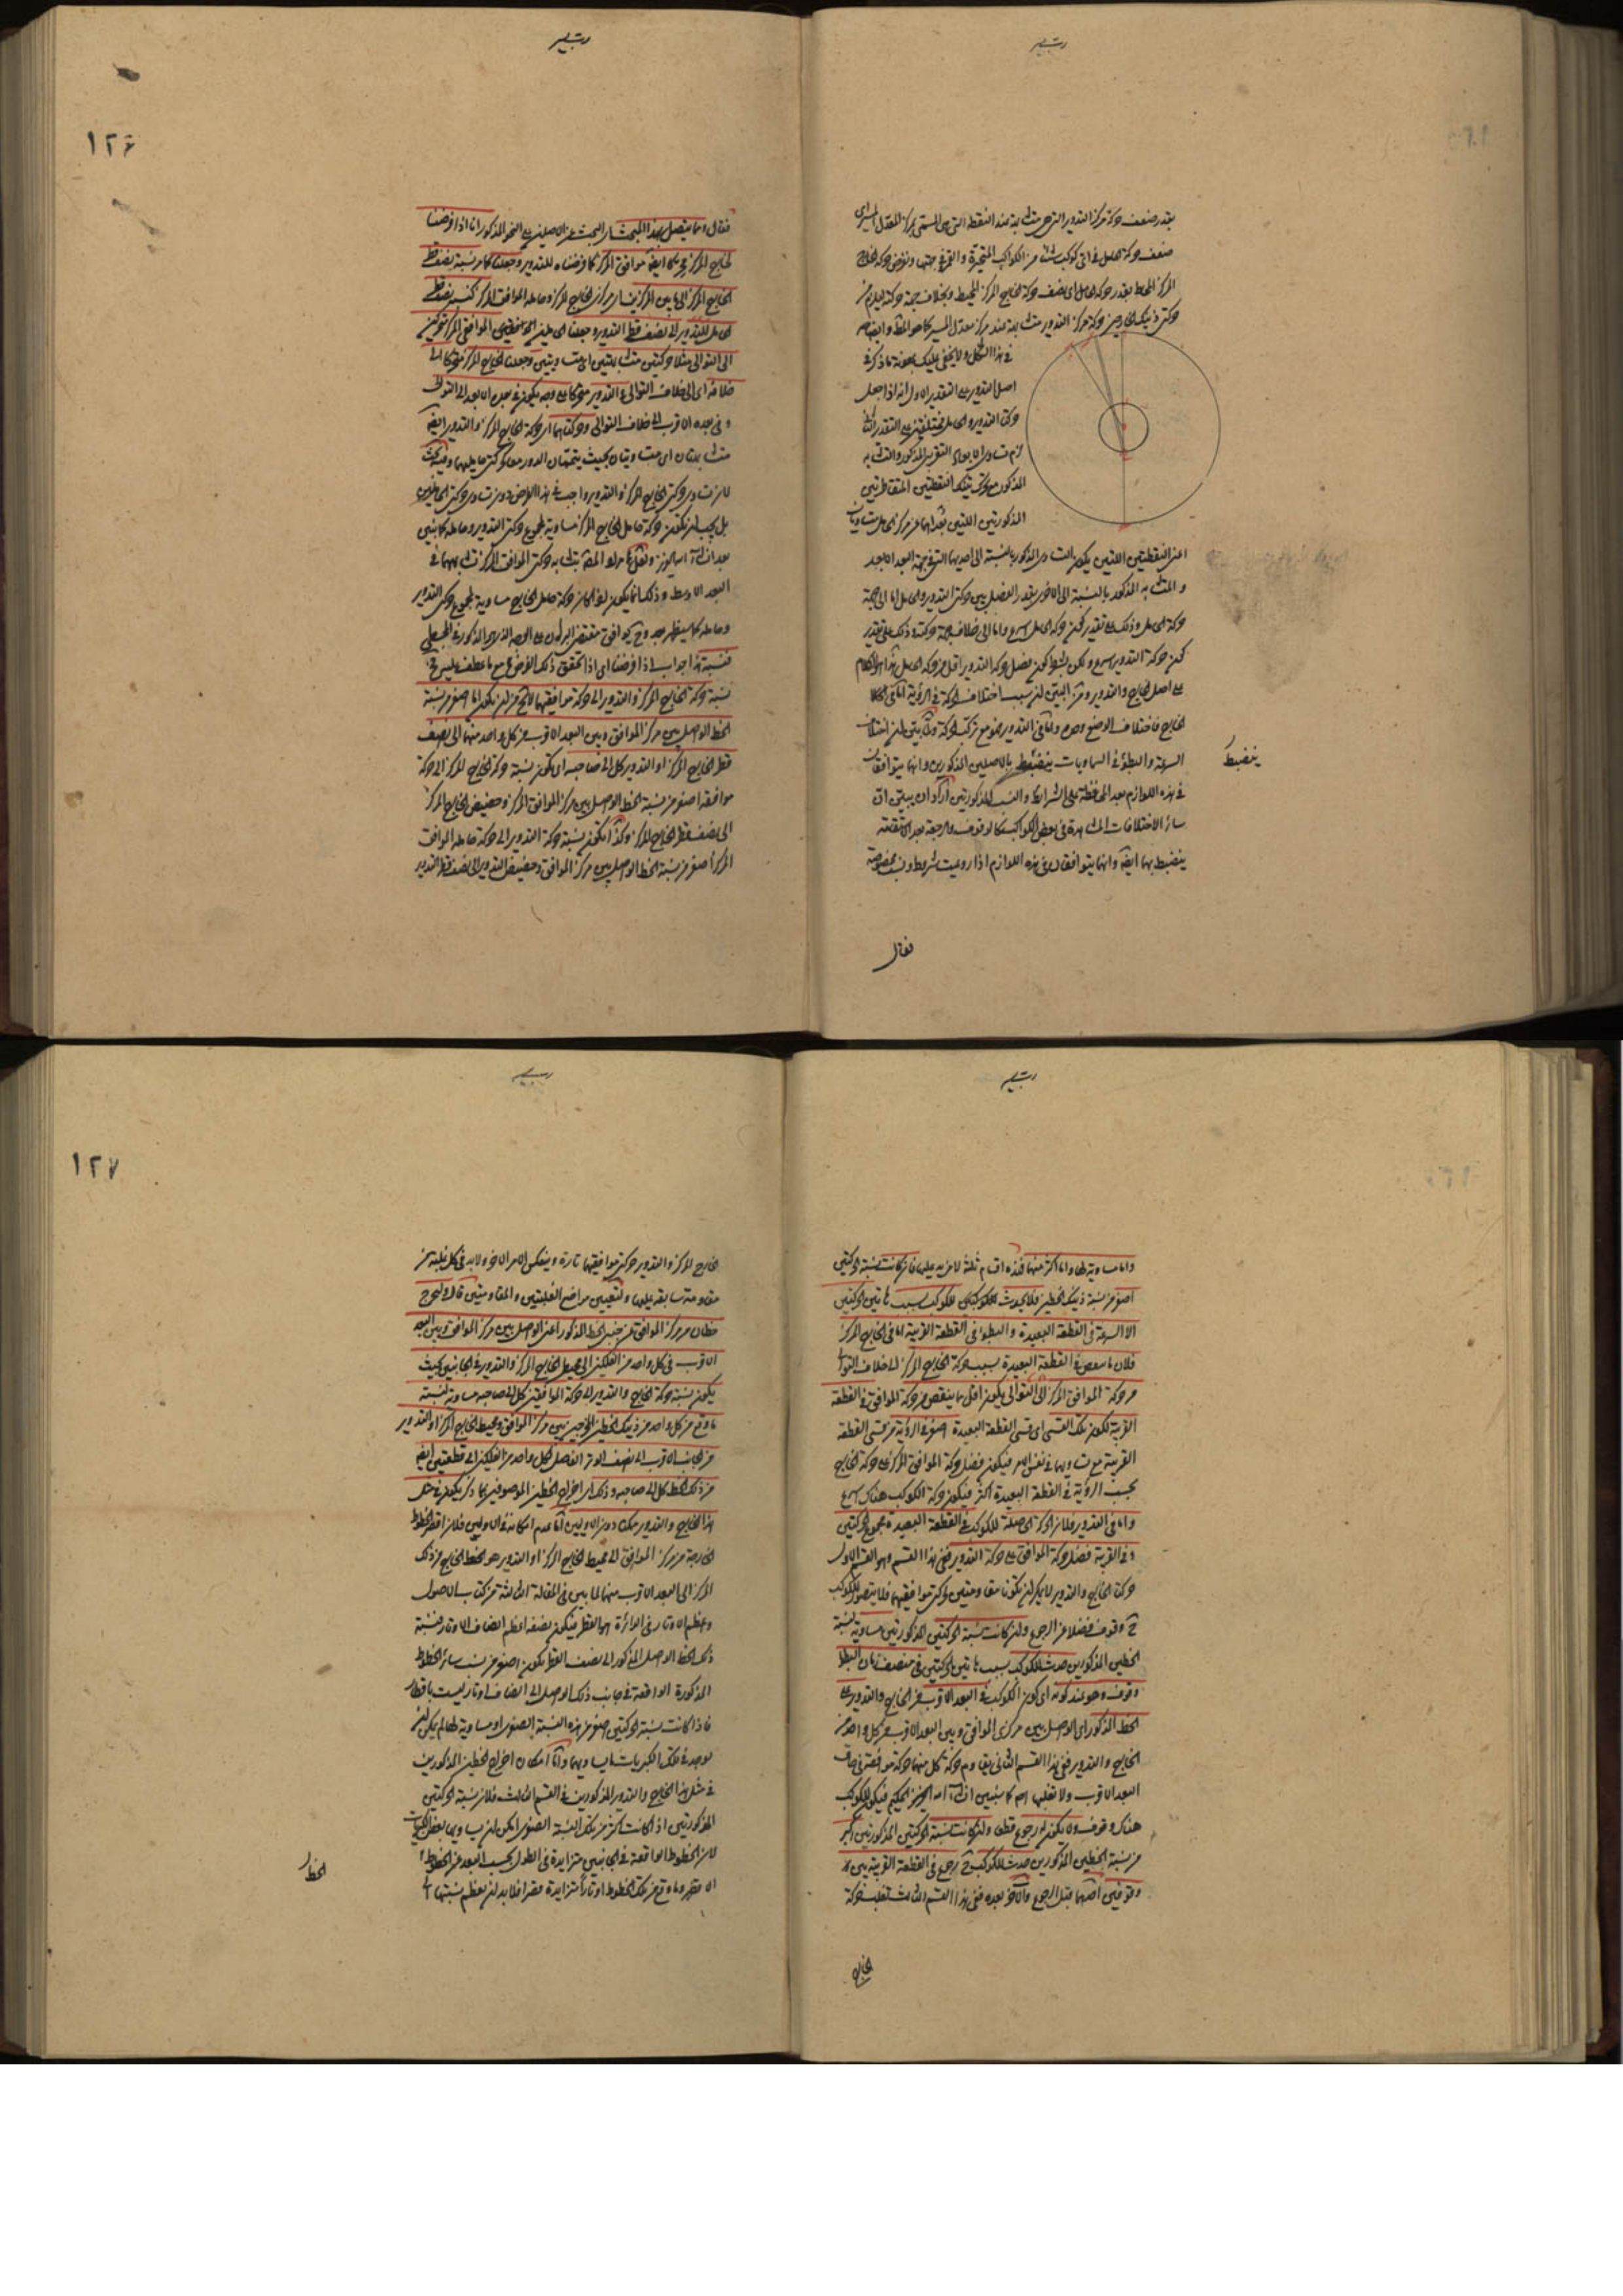 بقدر ضعف حركة مركز التدوير التى هى متشابهة عند النقطة التى هى المسمى بمركز المعدل المسير اى
ضعف حركة الحامل فى اى كوكب شئنا من الكواكب المتحيرة والقمر فى جهتها ونفرض حركة الخارج
المركز المحاط بقدر حركة الحامل اى نصف حركة الخارج المركز المحيط وبخلاف جهة حركته ليلزم من
حركتى ذينك الخارجين حركة مركز التدوير متشابهة عند مركز معدل المسير كما هو المط
فى هذا الشكل ولا يخفى عليك بمعونة ما ذكر فى
اصل التدوير على التقدير الاول انه اذا جعل
حركتا التدوير والحامل مختلفتين على التقدير الثانى
لزم تساوى الابعاد المذكور والتشابه
المذكور مع تحرك تينك النقطتين المتقاطرتين
المذكورتين اللتين بعداهما عن مركز الحامل متساويان
اعنى النقطتين اللتين يكون التساوى المذكور بالنسبة الى احديهما التى فى جهة البعد الابعد
والتشابه المذكور بالنسبة الى الاخرى بقدر الفضل بين حركتى التدوير والحامل اما الى جهة
حركة الحامل وذلك على تقدير كون حركة الحامل اسرع واما الى خلاف جهة حركته وذلك على تقدير
كون حركة التدوير اسرع ولكن بشرط كون فضل حركة التدوير اقل من حركة الحامل هذا هو الكلام
على اصل الخارج والتدوير ومن البين ان سبب اختلاف الحركة فى الرؤية اما فى
الخارج فاختلاف الوضع وحده واما فى التدوير فهو مع تركب الحركة ولما بين ان اختلاف
السرعة والبطؤ فى السماويات ينضبط باالاصلين المذكورين وانهما يتوافقان
ينضبط
فى هذه اللوازم بعد المحافظة على الشرائط والنسب المذكورتين اراد ان يبين ان
سائر الاختلافات المشاهدة فى بعض الكواكب كالوقوف والرجعة بعد الاستقامة
ينضبط بهما ايضا وانهما يتوافقان فى هذه اللوازم اذا روعيت شروط ونسب مخصوصة
فقال
١٢٦
فقال ومما يتصل بهذا المبحث اى البحث عن الاصلين على النحو المذكور انا اذا فرضنا
لخارج المركز محركا ايضا موافق المركز كما فرضناه للتدوير وجعلنا كما مر نسبة نصف قطر
الخارج المركز الى ما بين المركزين اى مركزى الخارج المركز وحامله الموافق المركز كنسبة نصف قطر
الحامل للتدوير الى نصف قطر التدوير وجعلنا الحاملين الموافقى المركز متحركين
الى التوالى مثلا حركتين متشابهتين اى متساويتين وجعلنا الخارج المركز متحركا الى
خلافه اى الى خلاف التوالى والتدوير متحركا على وجه يكون فى بعده الابعد الى التوالى
وفى بعده الاقرب الى خلاف التوالى وحركتاهما اى حركة الخارج المركز والتدوير ايضا
متشابهتان اى متساويتان بحيث يتممان الدور معا كحركتى حامليهما وفيه بحث
لان تساوى حركتى الخارج المركز والتدوير واجب فى هذا الفرض دون تساوى حركتى الحاملين
بل يجب ان تكون حركة حامل الخارج المركز مساوية لمجموع حركتى التدوير وحامله كما نبين
البعد الاوسط وذلك انما يكون لو كان حركة حامل الخارج مساوية لمجموع حركتى التدوير
وحامله كما سيظهر بعد وح يوافق مقتضى البرهان على الوجه الذى هو المذكور فى المجسطى
فنسبة هذا جواب اذا فرضنا اى اذا تحقق ذلك الفرض مع ما عطف عليه
نسبة حركة الخارج المركز والتدوير الى حركة موافقيهما لا تخ من ان تكون اما اصغر من نسبة
الخط الواصل بين مركز الموافق وبين البعد الاقرب من كل واحد منهما الى نصف
قطر الخارج المركز او التدوير كل الى صاحبه اى تكون نسبة حركة الخارج المركز الى حركة
موافقه اصغر من نسبة الخط الواصل بين مركز الموافق المركز وحضيض الخارج المركز
الى نصف قطر الخارج المركز وكذا تكون نسبة حركة التدوير الى حركة حامله الموافق
المركز اصغر من نسبة الخط الواصل بين مركز الموافق وحضيض التدوير الى نصف قطر التدوير
واما مساوية لها واما اكثر منها فهذه اقسام ثلثة لا مزيد عليها فان كانت نسبة الحركتين
اصغر من نسبة ذينك الخطين فلا يحدث للكوكب بسبب هاتين الحركتين
الا السرعة فى القطعة البعيدة والبطؤ فى القطعة القريبة اما فى الخارج المركز
فلان ما ينقص فى القطعة البعيدة بسبب حركة الخارج المركز الى خلاف التوالى
من حركة الموافق المركز الى التوالى يكون اقل مما ينقص من حركة الموافق فى القطعة
القريبة لكون تلك القسى اى قسى القطعة البعيدة اصغر فى الرؤية من قسى القطعة
القريبة مع تساويهما فى نفس الامر فيكون فضل حركة الموافق المركز على حركة الخارج
بحسب الرؤية فى القطعة البعيدة اكثر فيكون حركة الكوكب هناك اسرع
واما فى التدوير فلان الحركة الحاصلة للكوكب فى القطعة البعيدة مجموع الحركتين
وفى القريبة فضل حركة الموافق على حركة التدوير ففى هذا القسم وهو القسم الاول
حركة الخارج والتدوير لا يمكن ان تكونا مقاومتين لحركتى موافقيهما فلا يتصور للكوكب
ح وقوف فضلا عن الرجوع وان كانت نسبة الحركتين المذكورتين مساوية لنسبة
الخطين المذكورين حدث للكوكب بسبب هاتين الحركتين فى منتصف زمان البطؤ
وقوف وهو عند كونه اى كون الكوكب فى البعد الاقرب من الخارج والتدوير على
الخط المذكور اى الواصل بين مركزى الموافق وبين البعد الاقرب من كل واحد من
الخارج والتدوير ففى هذا القسم الثانى يقاوم حركة كل منهما حركة موافقه فى
البعد الاقرب ولا تغلبها فيكون للكوكب
هناك وقوف ولا يكون له رجوع قطعا وان كانت نسبة الحركتين المذكورتين اكبر
من نسبة الخطين المذكورين حدث للكوكب ح رجوع فى القطعة القريبة بين
وقوفين احدهما قبل الرجوع والآخر بعده ففى هذا القسم الثالث تغلب حركة
الخارج
١٢٧
الخارج المركز والتدوير حركتى موافقيهما تارة وينعكس الامر اخرى ولا بد فى كل غلبة من
مقاومة سابقة عليها ولتعيين مواضع الغلبتين والمقاومتين قال وليخرج
خطان من مركز الموافق عن جنبى الخط المذكور اعنى الواصل بين مركز الموافق وبين البعد
الاقرب فى كل واحد من الفلكين الى محيطى الخارج المركز والتدوير فى الجانبين بحيث
يكون نسبة حركة الخارج والتدوير الى حركة الموافقين كل الى صاحبه مساوية لنسبة
ما وقع من كل واحد من ذينك الخطين المخرجين بين مركز الموافق ومحيط الخارج المركز او التدوير
من الجانب الاقرب الى نصف الوتر الفاصل لكل واحد من الفلكين الى قطعتين ايضا
من ذلك الخط كل الى صاحبه وذلك اى اخراج الخطين الموصوفين بما ذكر يكون فى مثل
هذا الخارج والتدوير ممكنا دون الاولين اما عدم امكانه فى الاولين فلان اقصر الخطوط
الخارجة من مركز الموافق الى محيط الخارج المركز او التدوير هو الخط الخارج من ذلك
المركز الى البعد الاقرب منهما لما بين فى المقالة الثالثة من كتاب الاصول
واعظم الاوتار فى الدائرة هو القطر فيكون نصفه اعظم انصاف الاوتار فنسبة
ذلك الخط الواصل المذكور الى نصف القطر يكون اصغر من نسب سائر الخطوط
المذكورة الواقعة فى جانب ذلك الواصل الى انصاف اوتار ليست باقطار
فاذا كانت نسبة الحركتين اصغر من هذه النسبة الصغرى او مساوية لها لم يمكن ان
يوجد فى تلك الكبريات ما يساويها واما امكان اخراج الخطين المذكورين
فى مثل هذا الخارج والتدوير المذكورين فى القسم الثالث فلان نسبة الحركتين
المذكورتين اذا كانت اكثر من تلك النسبة الصغرى امكن ان يساويها بعض الكبريات
لان الخطوط الواقعة فى الجانبين متزايدة فى الطول بحسب البعد من الخط
الخط
الاقصر وما وقع من تلك الخطوط اوتارا متزايدة قصرا فلا بد ان يعظم نسبتها